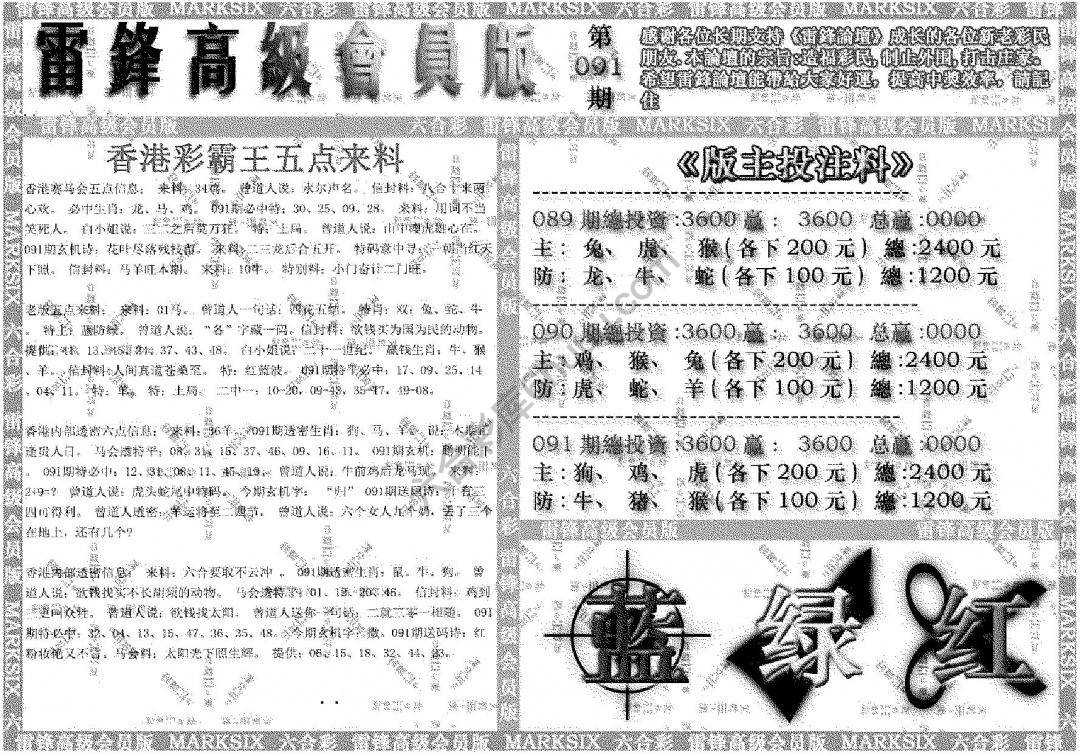 雷锋高级会员版 MARKSIX 六合彩 雷锋高级会员版 MARKSIX 六合彩 雷锋高级会员版 MARKSIX 六合彩
雷鋒高級會員版
第
091
期
感謝各位长期支持《雷鋒論壇》成长的各位新老彩民
朋友.本論壇的宗旨:造福彩民,制止外围,打击庄家.
希望雷鋒論壇能帶給大家好運，提高中獎效率，請記
住
雷锋高级会员版 六合彩 雷锋高级会员版 MARKSIX 六合彩 雷锋高级会员版 MARKSIX
香港彩霸王五点来料
香港赛马会五点信息： 来料：34鸡。 曾道人说：永尔声名。 信封料：八合十来两
心欢。 必中生肖：龙、马、鸡。 091期必中特：30、25、09、28。 来料：用词不当
笑死人。 白小姐说：三二之后莫万狂。 特：土局。 曾道人说：山中魂虎雄心在。
091期玄机诗：花叶尽落残枝留。 来料：二三龙后合五开。 特码意中寻：一朝当红天
下照。 信封料：马羊旺本期。 来料：10牛。 特别料：小门奇计二门旺。
老版五点来料： 来料：01马。 曾道人一句话：四花五结。 特肖：双：兔、蛇、牛
。 特上：蓝防绿。 曾道人说：“各”字藏一码。信封料：欲钱买为国为民的动物。
提供：41、13、45、34、37、43、48。 白小姐说：二十一世纪。 赢钱生肖：牛、猴
、羊。 信封料：人间真道苍桑至。 特：红蓝波。 091期特必中：17、09、25、14
、04、11。 特：羊。 特：土局。 二中一：10-26，09-43，35-17，49-08。
香港内部透密六点信息： 来料：36羊。 091期透密生肖：狗、马、羊。 说：本期正
逢贵人日。 马会透特平：08、31、15、37、46、09、16、11。 091期玄机：聪明能干
。 091期特必中：12、31、08、11、45、19。 曾道人说：牛前鸡后龙马现。 来料：
2+9=？ 曾道人说：虎头蛇尾中特码。 今期玄机字： “归” 091期送码诗：十有三
四可得利。 曾道人透密：羊运将至二调节。 曾道人说：六个女人九千奶，丢了三个
在地上，还有几个?
香港内部透密信息： 来料：六合要取不云冲 。 091期透密生肖：鼠、牛、狗。 曾
道人说：欲钱找买不长胡须的动物。 马会透特：01、12、20、46。 信封料：鸡到
一更叫众牲。 曾道人说：欲钱找太阳。 曾道人送你一句话：二就三零一相随。 091
期特必中：32、04、13、15、47、36、35、48。 今期玄机字：撒。091期送码诗：红
粉妆艳又不言。马会料：太阳光下照生辉。 提供：06、15、18、32、44、23。
《版主投注料》
089 期總投資:3600 赢： 3600 总赢:0000
主：兔、虎、猴(各下 200 元) 總:2400 元
防：龙、牛、蛇(各下 100 元) 總:1200 元
090 期總投資:3600 赢： 3600 总赢:0000
主:鸡、猴、兔(各下 200 元) 總:2400 元
防:虎、蛇、羊(各下 100 元) 總:1200 元
091 期總投資:3600 赢： 3600 总赢:0000
主:狗、鸡、虎(各下 200 元) 總:2400 元
防:牛、猪、猴(各下 100 元) 總:1200 元
雷锋高级会员版 MARKSIX 六合彩 雷锋高级会员版
蓝 绿 红
雷锋高级会员版 MARKSIX 六合彩 雷锋高级会员版 MARKSIX 六合彩 雷锋高级会员版 MARKSIX 六合彩